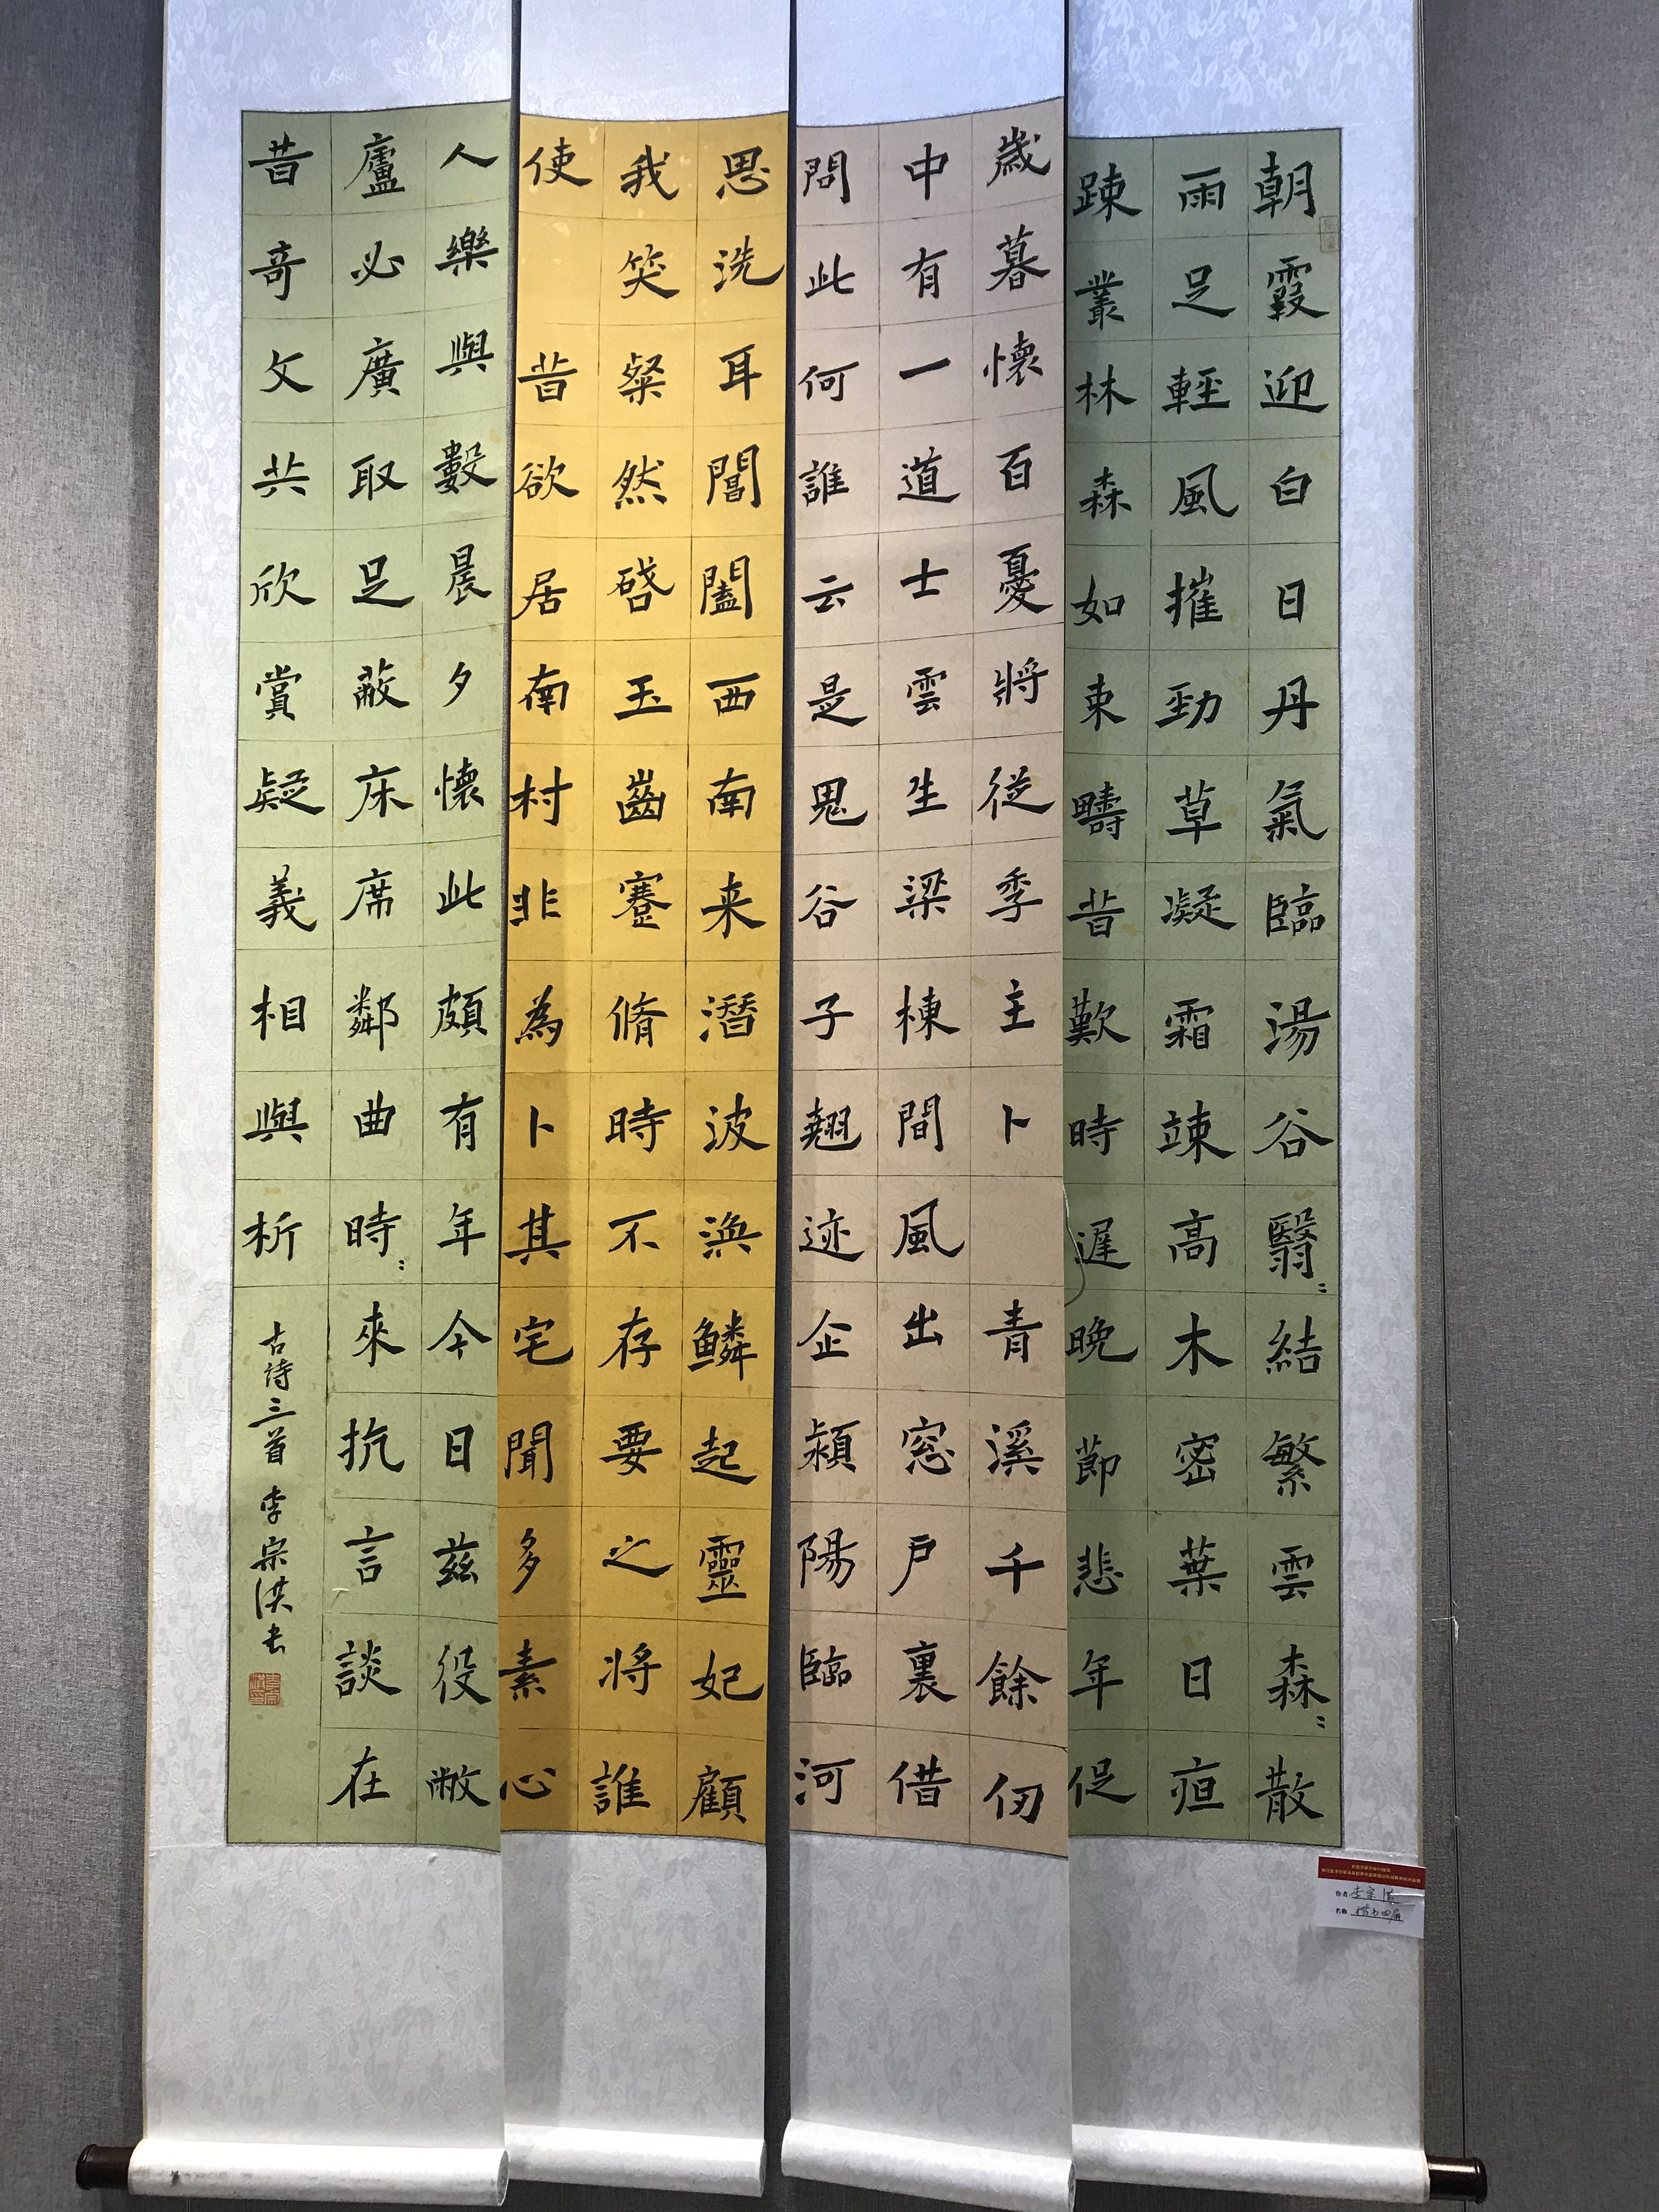 朝霞迎白日丹氣臨湯谷翳〻結繁雲森〻散
雨足輕風摧勁草凝霜竦高木密葉日亱
踈叢林森如束疇昔歎時遲晚節悲年促
歲暮懷百憂將從季主卜 青溪千餘仞
中有一道士雲生梁棟間風出窓戶裏借
問此何誰云是鬼谷子翹迹企潁陽臨河
思洗耳閶闔西南来潛波渙鱗起靈妃顧
我笑粲然啓玉齒蹇脩時不存要之将誰
使 昔欲居南村非為卜其宅聞多素心
人樂與數晨夕懷此頗有年今日茲役敝
廬必廣取足蔽床席鄰曲時〻來抗言談在
昔奇文共欣賞疑義相與析
古诗三首 李宗洪书
作者 李宗洪
名称 楷书四屏